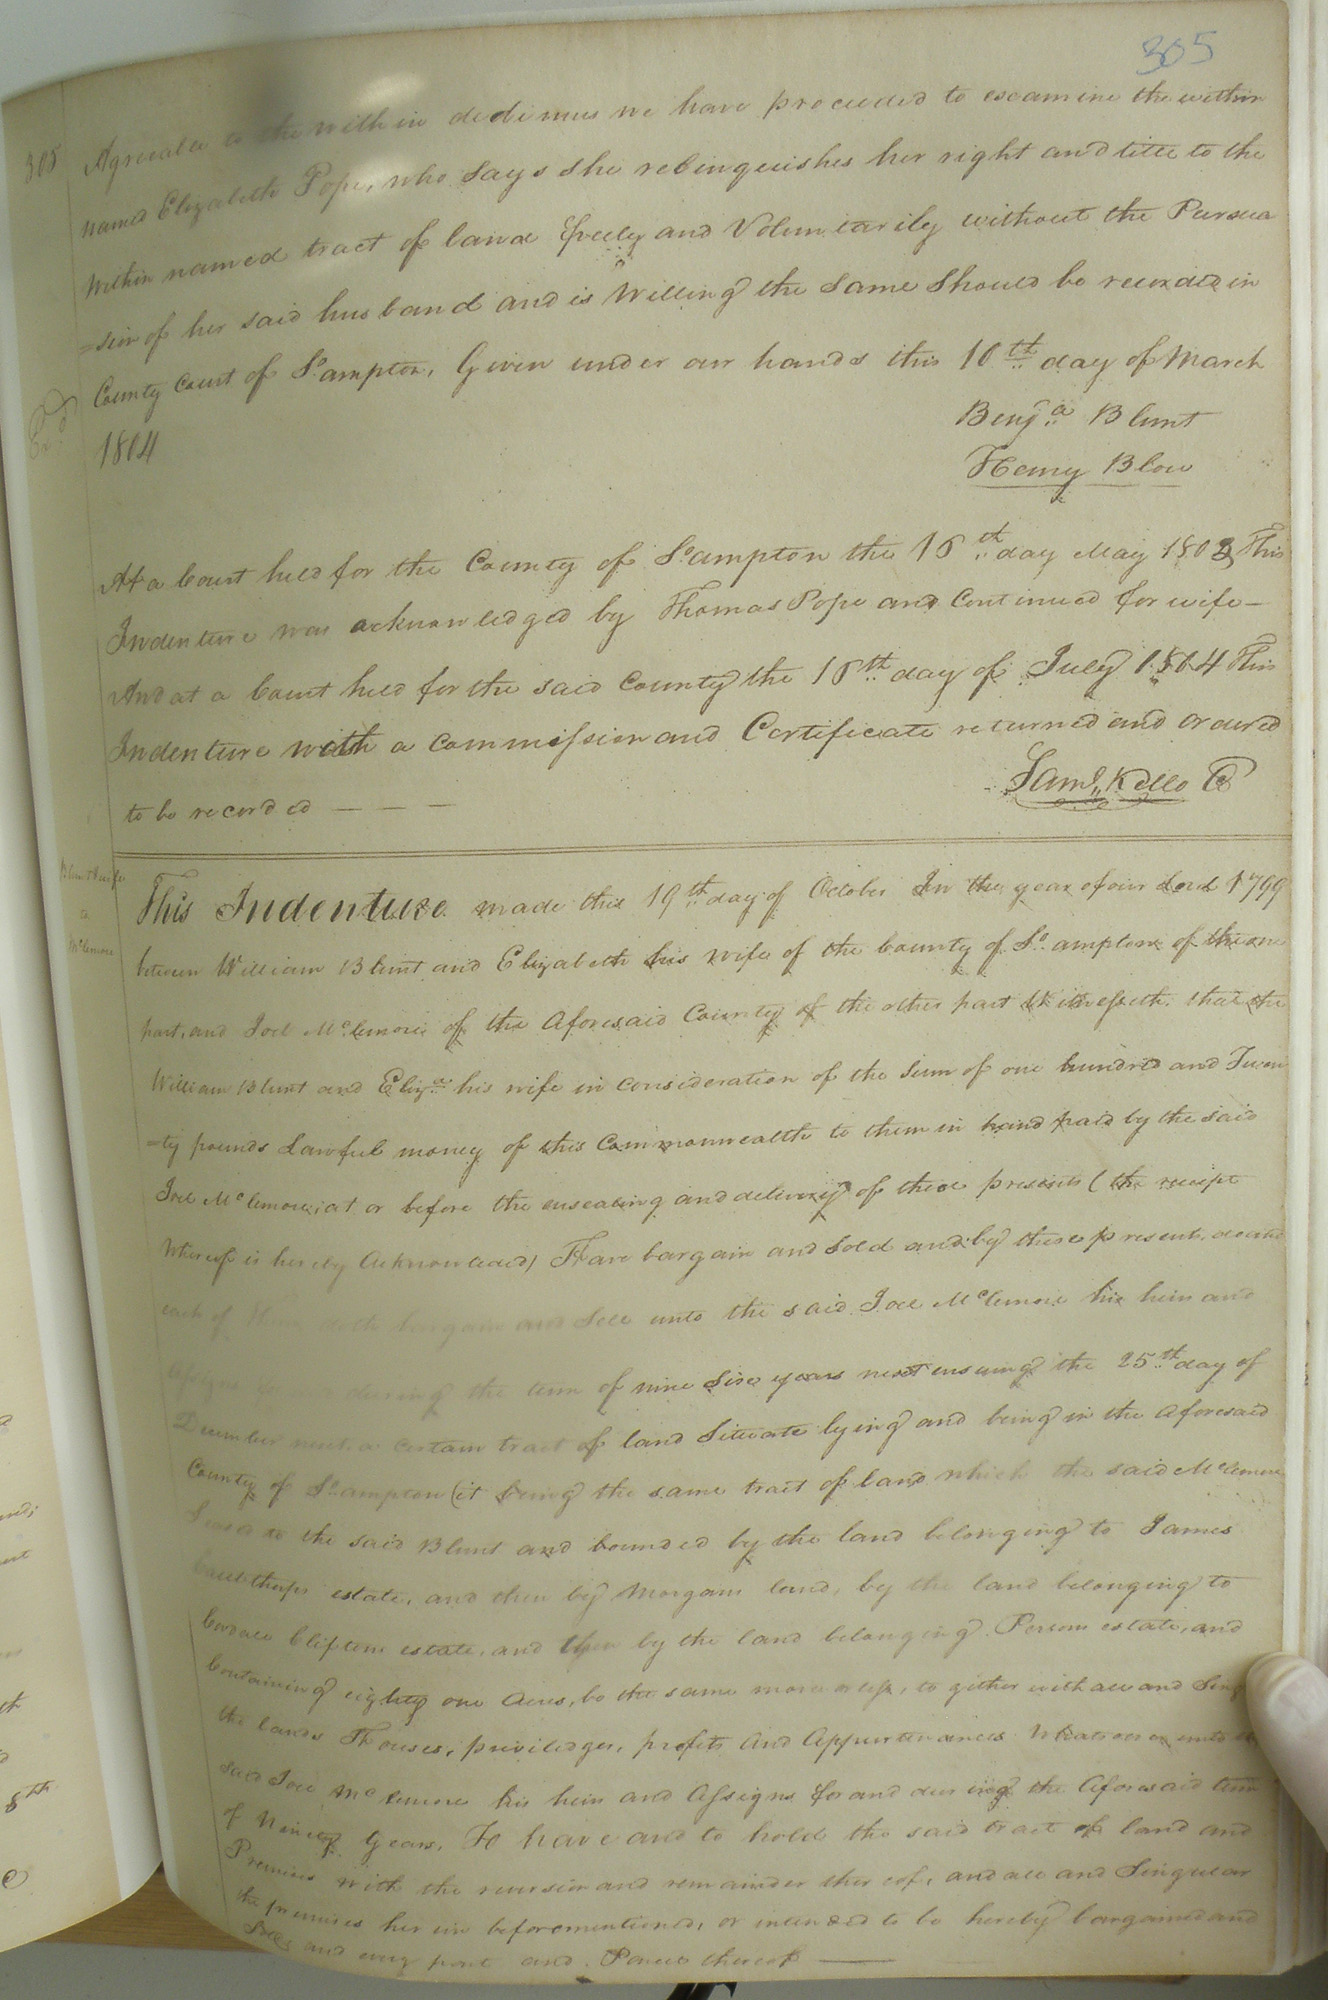 305
305
Agreeable to the within dedimus we have proceeded to excamine the within
named Elizabeth Pope, who Says She relinquishes her right and title to the
Within named tract of land freely and Voluntarily without the Persua
=sion of her said husband and is Willing the Same Should be recorded in
County Court of S.ampton, Given under our hands this 10th day of March
1804
Benja Blunt
Henry Blow
Exd
At a Court held for the County of S.ampton the 16th day May 1803 This
Indenture was acknowledged by Thomas Pope and Continued for wife –
And at a Court held for the said County the 16th day of July 1804 This
Indenture with a commission and Certificate returned and ordered
to be recorded — — —
Saml. Kello C
Blunt & wife
to
Mclemore
This Indenture made this 19th day of October In the year of our Lord 1799
between William Blunt and Elizabeth his wife of the County of So.ampton of the one
part, and Joel Mclemore of the Aforesaid County of the other part Witnesseth. that the
William Blunt and Eliza. his wife in consideration of the Sum of one hundred and Twen
=ty pounds Lawful money of this Commonwealth to them in hand paid by the said
Joel Mclemore, at or before the ensealing and delivery of these presents (the receipt
Whereof is hereby Acknowleded) Have bargain and Sold and by these presents, do and
each of them doth bargain and Sell unto the said Joel Mclemore his heirs and
during the term of nine Six years next ensuing the 25th day of
December next a certain tract of land Situate lying and being in the aforesaid
County of S.ampton (it being the same tract of land which the said Mclemore
Leased to the said Blunt and bounded by the land belonging to James
estate, and then by Morgans land, by the land belonging to
Cordall Cliftons estate, and then by the land belonging Persons estate, and
Containing eighty one Acres, be the same more or less, to gether with all and Sing
the lands Houses, priviledges, profits And Appurtenances Whatsoever unto the
said Joel Mclemore his heirs and Assigns for and during the Aforesaid term
of Ninety Years. To have and to hold the said tract of land and
Premises With the reversion and remainder thereof, and all and Singular
the premises herein beforementioned, or intended to be hereby bargained and
Sold, and every part and Parcel thereof —
8th